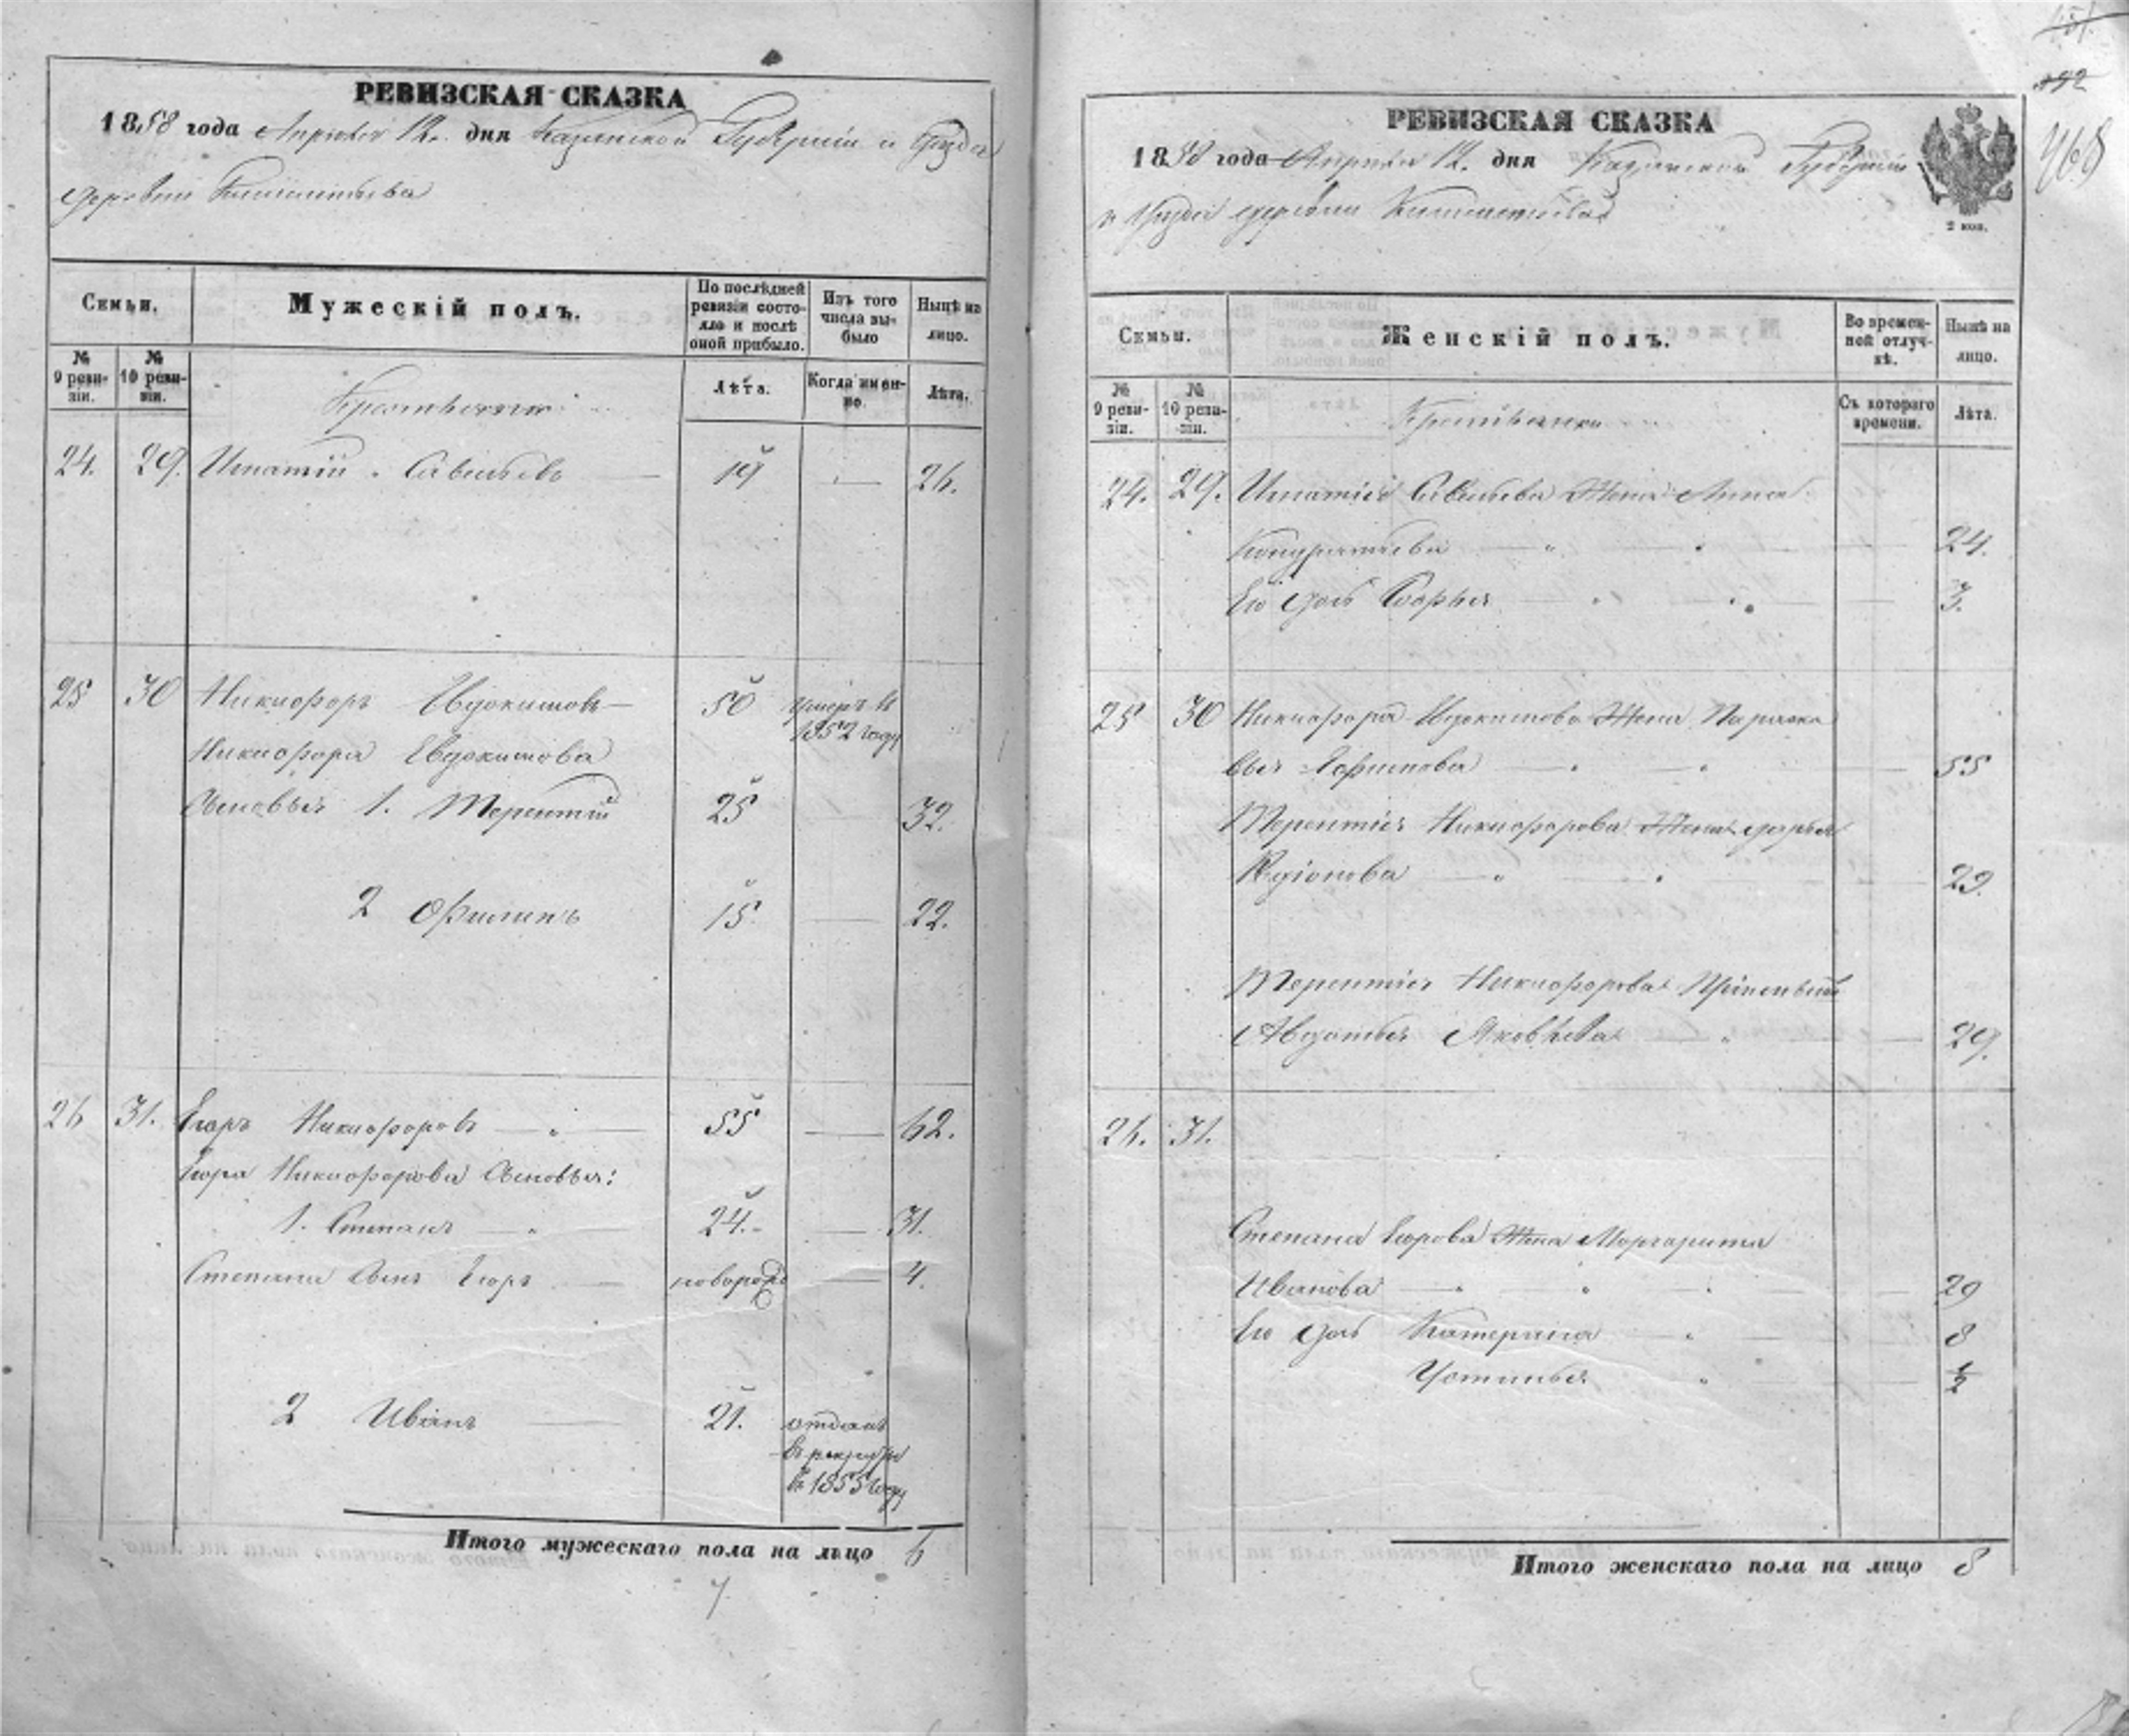 РЕВИЗСКАЯ СКАЗКА
1858 года Апреля 12. дня Казанской Губерніи и Уѣзда
деревни
Семьи.
Мужескій полъ.
По послѣдней ревизіи состояло и послѣ оной прибыло.
Изъ того числа выбыло
Нынѣ на лицо.
№ 9 ревизіи.
№ 10 ревизіи.
Крестьяне
Лѣта.
Когда именно.
Лѣта.
24. 29. Игнатій Савельевъ — 19 — 26.
25 30 Никифоръ Евдокимовъ — 50 умеръ въ 1852 году
Никифора Евдокимова
Сыновья 1. Терентій 25 32.
2 Филипъ 15 — 22.
26 31. Егоръ Никифоровъ — 55 — 62.
Егора Никифорова Сыновья:
1. Степанъ — 24. — 31.
Степана Сынъ Егоръ — новорож — 4.
2 Иванъ — 21. отданъ
въ рекруты
въ 1855 году
Итого мужескаго пола на лицо 6
7.
РЕВИЗСКАЯ СКАЗКА
1858 года Апреля 12. дня Казанской Губерніи
и Уѣзда деревни
2 коп.
468
Семьи.
Женскій полъ.
Во временной отлучкѣ.
Нынѣ на лицо.
№ 9 ревизіи.
№ 10 ревизіи.
Крестьянки
Съ котораго времени.
Лѣта.
24. 29. Игнатія Савельева Жена Анна
Кондратьева — 24.
Его дочь Софья — 3.
25 30 Никифора Евдокимова Жена Параске
вья Ефимова — 55
Терентія Никифорова Жена Дарья
Родіонова — 29.
Терентія Никифорова
Авдотья Яковлева — 29.
26. 31.
Степана Егорова Жена Моргарита
Иванова — 29
Его дочь Катерина — 8
Устинья — 1/2
Итого женскаго пола на лицо 8